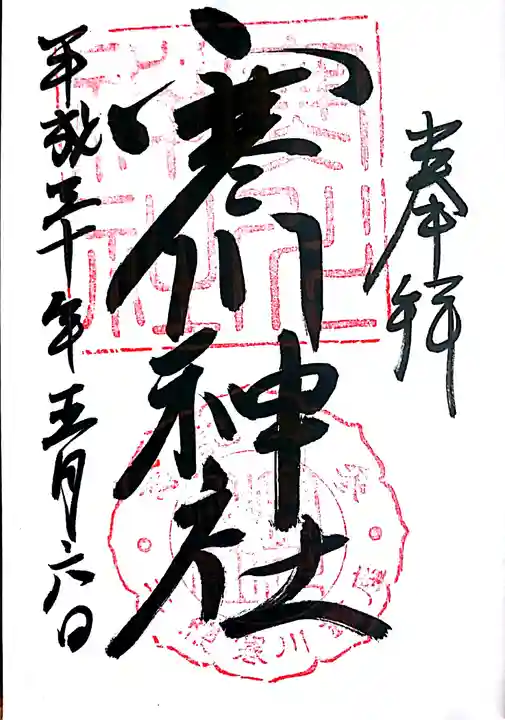 奉拝
寒川神社
平成三十年五月六日